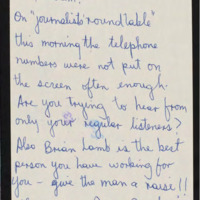 On "journalists roundtable"
this morning the telephone
numbers were not put on
the screen often enough.
Are you trying to hear from
only your regular listeners?
Also Brian Lamb is the best
person you have working for
you - give the man a raise!!